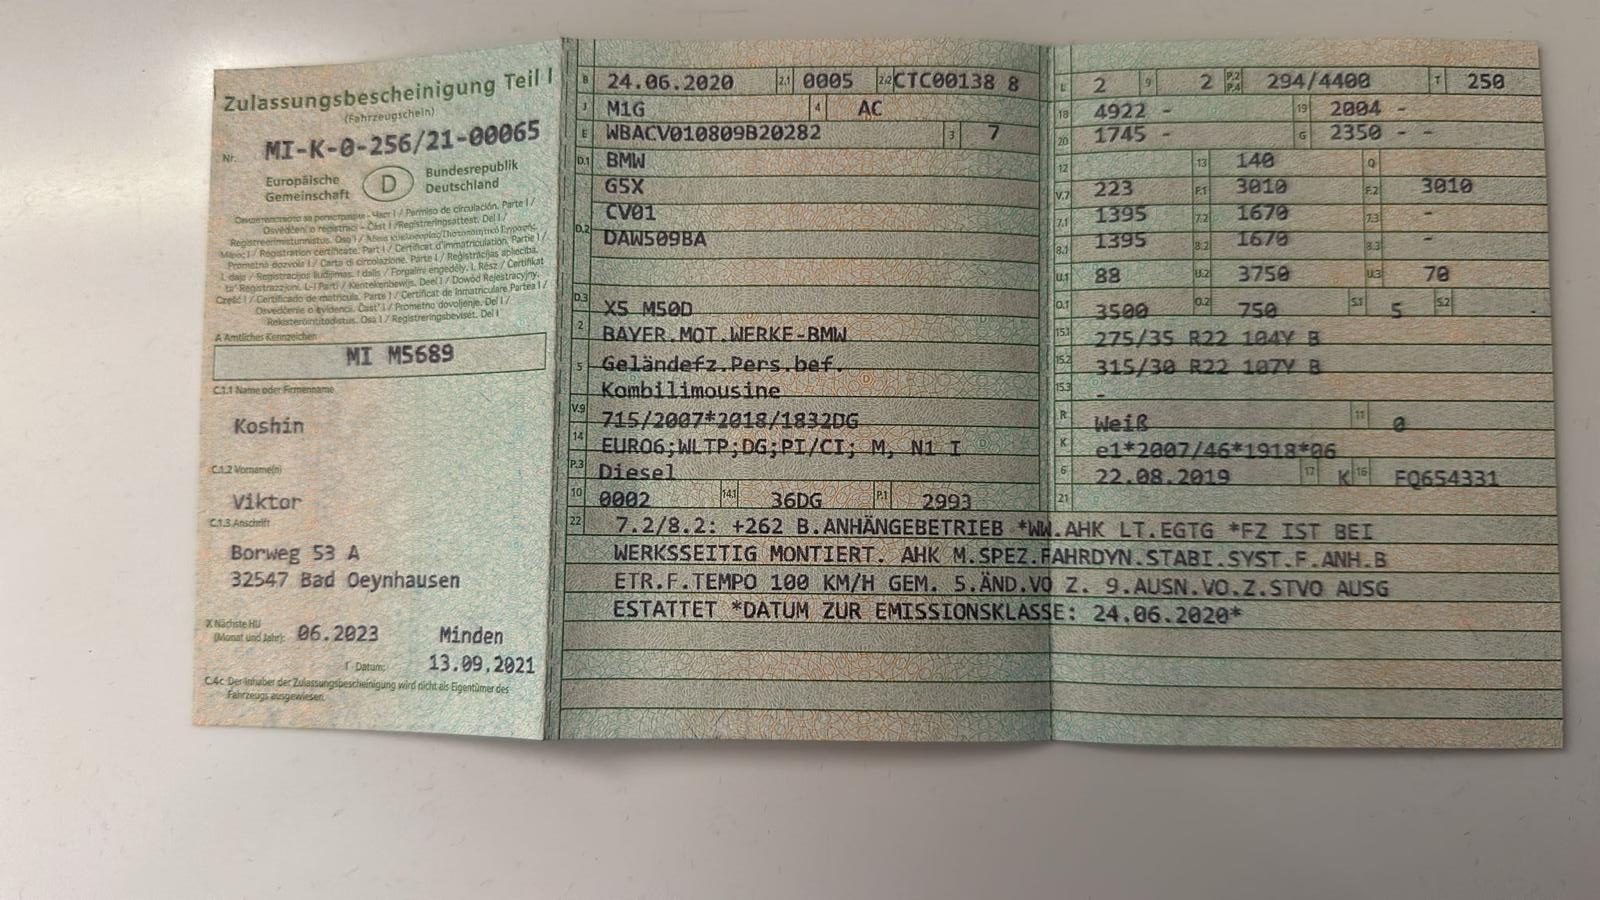 Zulassungsbescheinigung Teil I
(Fahrzeugschein)
Nr. MI-K-0-256/21-00065
Europäische Gemeinschaft D Bundesrepublik Deutschland
Permiso de circulación. Parte I /
Osvědčení o registraci - Část I / Registreringsattest. Del I /
Registreerimistunnistus. Osa I /
Registration certificate. Part I / Certificat d'immatriculation. Partie I /
Prometna dozvola I / Carta di circolazione. Parte I / Reģistrācijas apliecība.
I. daļa / Registracijos liudijimas. I dalis / Forgalmi engedély. I. Rész / Ċertifikat
ta' Reġistrazzjoni. L-I Parti / Kentekenbewijs. Deel I / Dowód Rejestracyjny.
Część I / Certificado de matrícula. Parte I / Certificat de Înmatriculare. Partea I /
Osvedčenie o evidencii. Časť I / Prometno dovoljenje. Del I /
Rekisteröintitodistus. Osa I / Registreringsbeviset. Del I
A Amtliches Kennzeichen
MI M5689
C.1.1 Name oder Firmenname
Koshin
C.1.2 Vorname(n)
Viktor
C.1.3 Anschrift
Borweg 53 A
32547 Bad Oeynhausen
X Nächste HU
(Monat und Jahr): 06.2023 Minden
I Datum: 13.09.2021
C.4c Der Inhaber der Zulassungsbescheinigung wird nicht als Eigentümer des
Fahrzeugs ausgewiesen.
B 24.06.2020 2.1 0005 2.2 CTC00138 8
J M1G 4 AC
E WBACV010809B20282 3 7
D.1 BMW
G5X
D.2 CV01
DAW509BA
D.3 X5 M50D
2 BAYER.MOT.WERKE-BMW
5 Geländefz.Pers.bef.
Kombilimousine
V.9 715/2007*2018/1832DG
14 EURO6;WLTP;DG;PI/CI; M, N1 I
P.3 Diesel
10 0002 14.1 36DG P.1 2993
L 2 9 2 P.2 P.4 294/4400 T 250
18 4922 - 19 2004 -
20 1745 - G 2350 - -
12 13 140 Q
V.7 223 F.1 3010 F.2 3010
7.1 1395 7.2 1670 7.3 -
8.1 1395 8.2 1670 8.3 -
U.1 88 U.2 3750 U.3 70
O.1 3500 O.2 750 S.1 5 S.2 -
15.1 275/35 R22 104Y B
15.2 315/30 R22 107Y B
15.3 -
R Weiß 11 0
K e1*2007/46*1918*06
6 22.08.2019 17 K 16 FQ654331
21
22 7.2/8.2: +262 B.ANHÄNGEBETRIEB *WW.AHK LT.EGTG *FZ IST BEI
WERKSSEITIG MONTIERT. AHK M.SPEZ.FAHRDYN.STABI.SYST.F.ANH.B
ETR.F.TEMPO 100 KM/H GEM. 5.ÄND.VO Z. 9.AUSN.VO.Z.STVO AUSG
ESTATTET *DATUM ZUR EMISSIONSKLASSE: 24.06.2020*